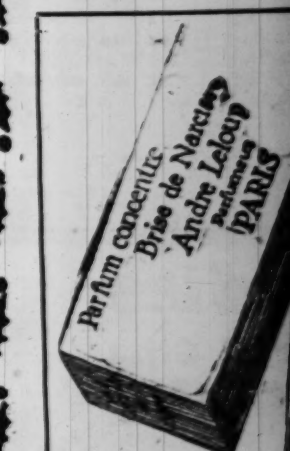 Parfum concentre
Brise de Narcisse
Andre Leloup
Parfumeur
PARIS